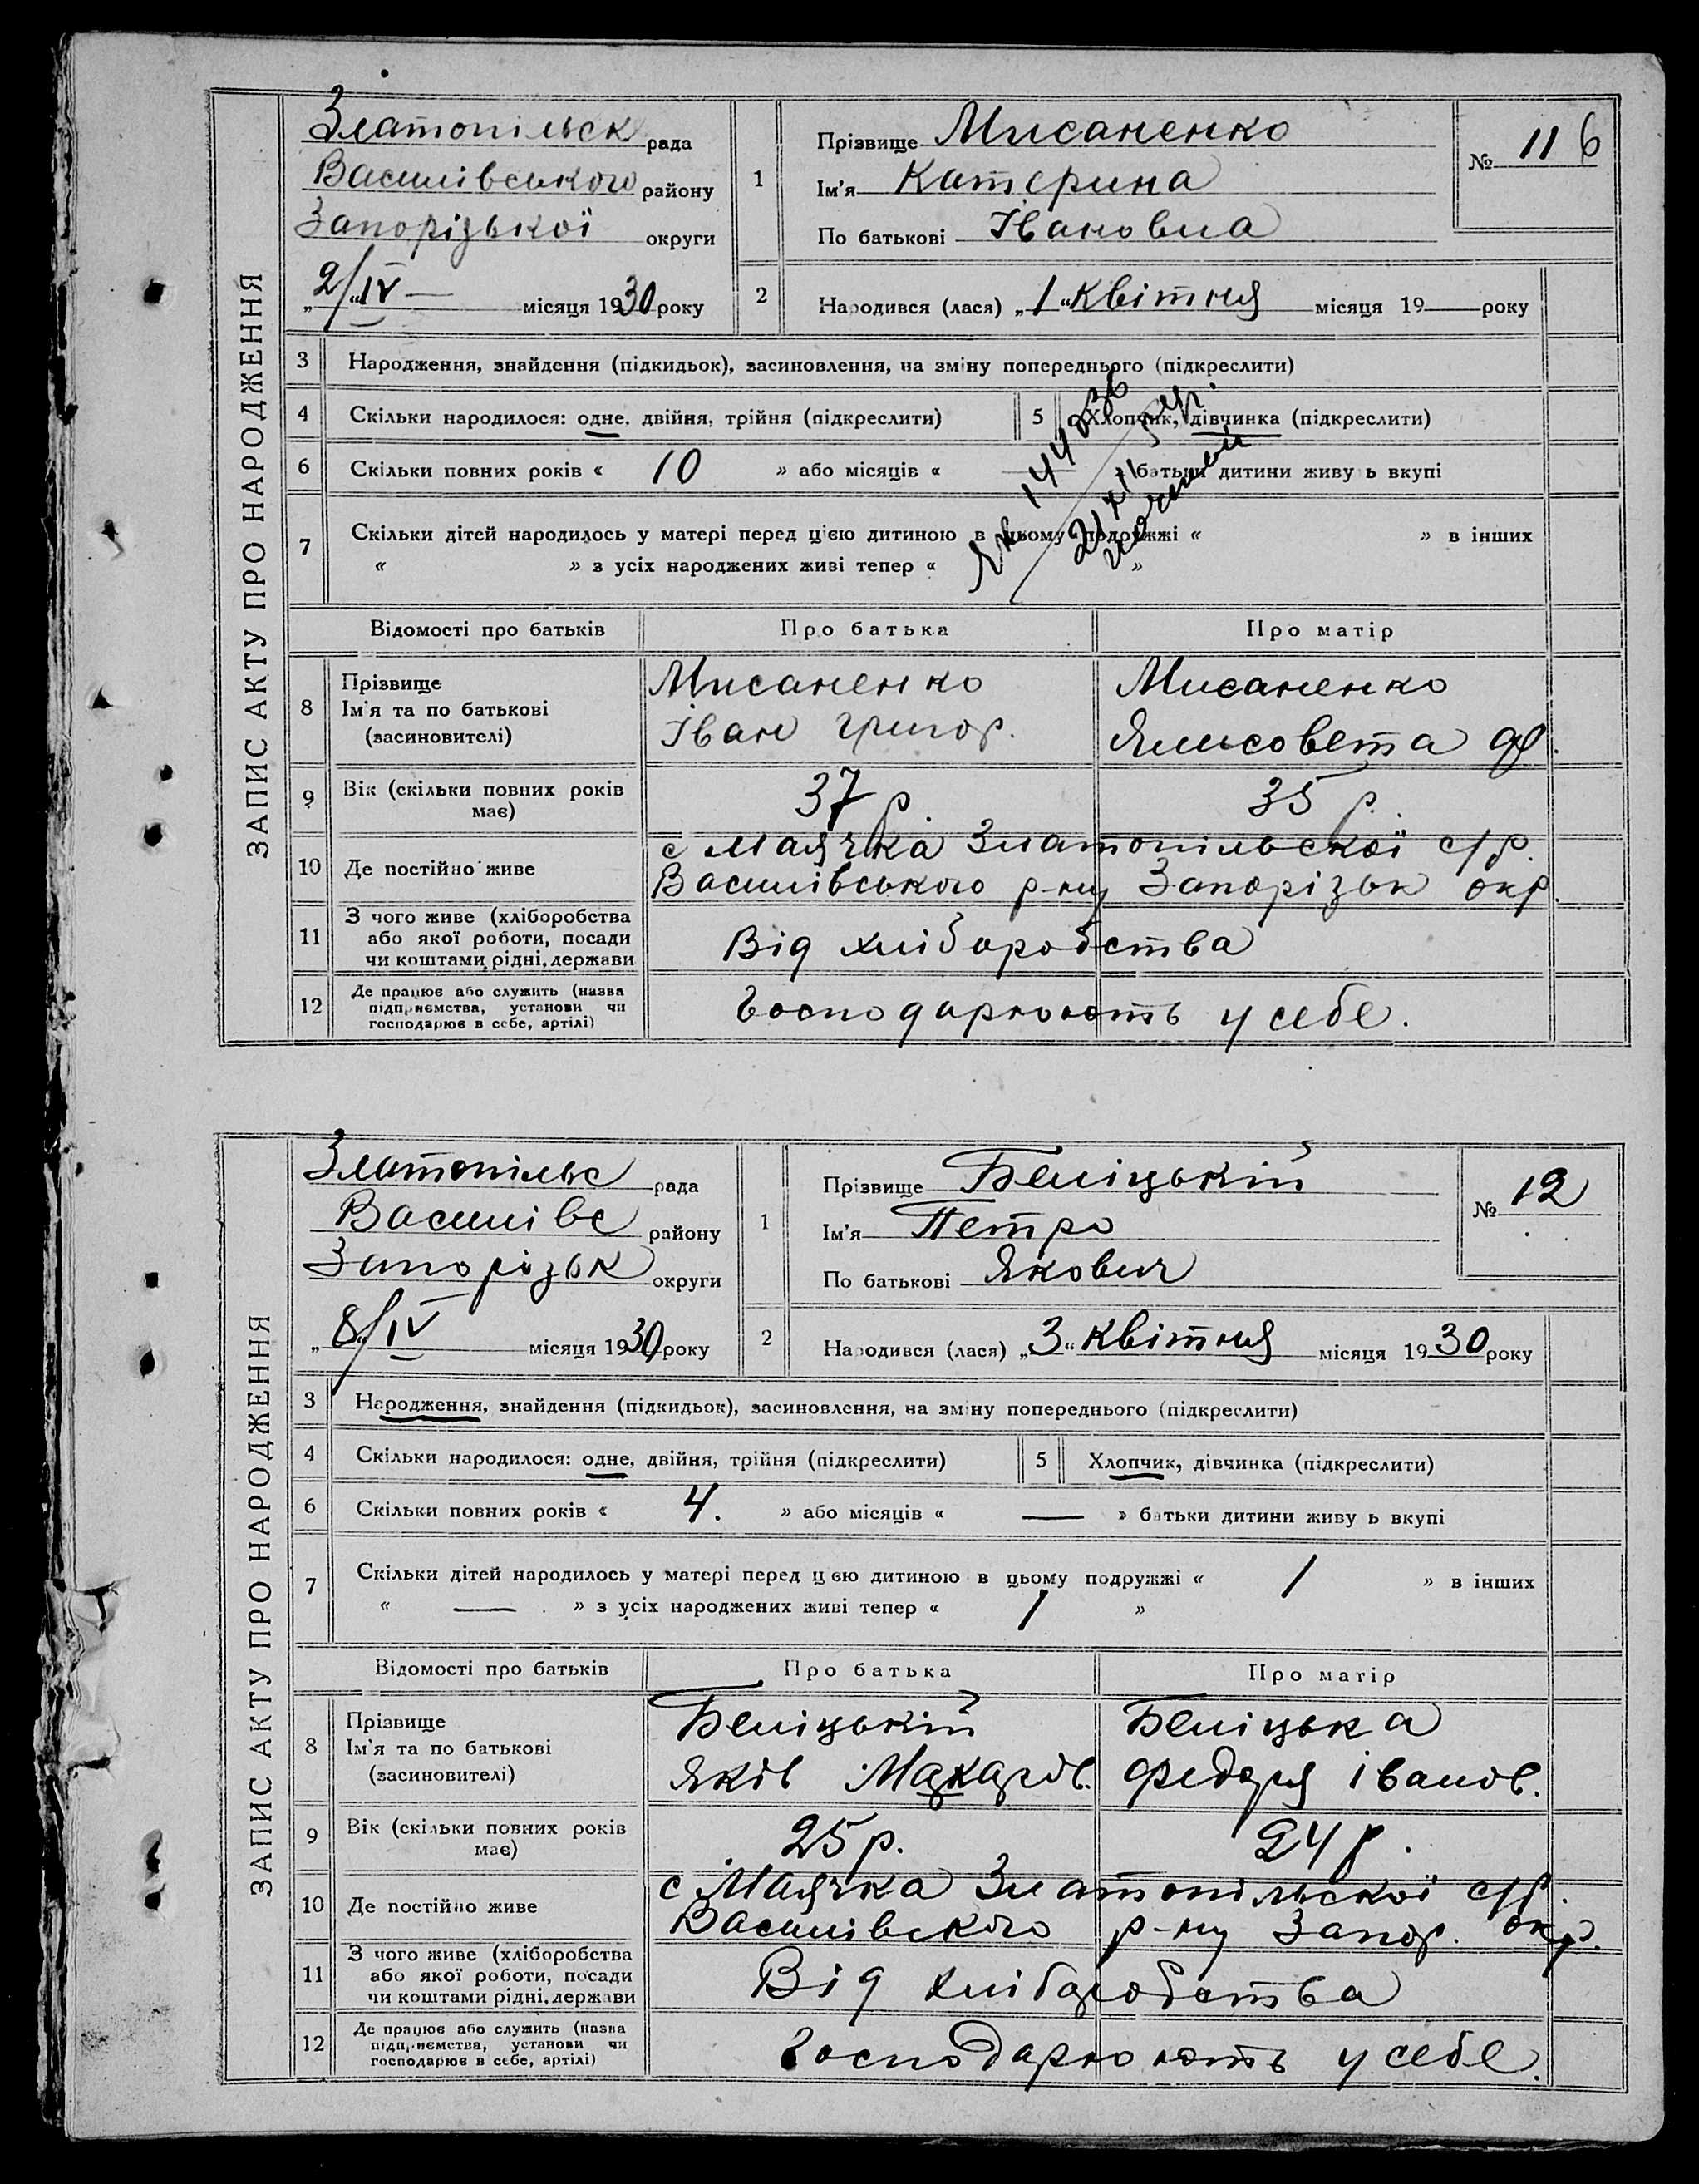 ЗАПИС АКТУ ПРО НАРОДЖЕННЯ
Златопільск рада
Василівського району
Запорізької округи
2/IV — місяця 1930 року
1
Прізвище Мисаненко
Ім'я Катерина
По батькові Івановна
№ 11 6
2
Народився (лася) „1“ квітня місяця 19 — року
3 Народження, знайдення (підкидьок), засиновлення, на зміну попереднього (підкреслити)
4 Скільки народилося: одне, двійня, трійня (підкреслити)
5 Хлопчик, дівчинка (підкреслити)
6 Скільки повних років « 10 » або місяців « — » батьки дитини живу ь вкупі
7 Скільки дітей народилось у матері перед цією дитиною в цьому подружжі « » в інших
« » з усіх народжених живі тепер « »
144036
Відомості про батьків
Про батька
Про матір
8 Прізвище
Ім'я та по батькові
(засиновителі)
Мисаненко
Іван Григор.
Мисаненко
Ялисовета Ф.
9 Вік (скільки повних років
має)
37 р.
35 р.
10 Де постійно живе
с Маячка Златопільскої с/р.
Василівського р-ну Запорізьк окр.
11 З чого живе (хліборобства
або якої роботи, посади
чи коштами рідні, держави
Від хліборобства
12 Де працює або служить (назва
підприємства, установи чи
господарює в себе, артілі)
Господарюють у себе.
ЗАПИС АКТУ ПРО НАРОДЖЕННЯ
Златопільс рада
Василівс району
Запорізьк округи
„8/IV місяця 1930 року
1
Прізвище Беліцький
Ім'я Петро
По батькові Якович
№ 12
2
Народився (лася) „3“ квітня місяця 1930 року
3 Народження, знайдення (підкидьок), засиновлення, на зміну попереднього (підкреслити)
4 Скільки народилося: одне, двійня, трійня (підкреслити)
5 Хлопчик, дівчинка (підкреслити)
6 Скільки повних років « 4. » або місяців « — » батьки дитини живу ь вкупі
7 Скільки дітей народилось у матері перед цією дитиною в цьому подружжі « 1 » в інших
« — » з усіх народжених живі тепер « 1 »
Відомості про батьків
Про батька
Про матір
8 Прізвище
Ім'я та по батькові
(засиновителі)
Беліцький
Яків Макаров.
Беліцька
Федора Іванов.
9 Вік (скільки повних років
має)
25 р.
24 р.
10 Де постійно живе
с Маячка Златопільскої с/р.
Василівского р-ну Запор. окр.
11 З чого живе (хліборобства
або якої роботи, посади
чи коштами рідні, держави
Від хліборобства
12 Де працює або служить (назва
підприємства, установи чи
господарює в себе, артілі)
Господарюють у себе.